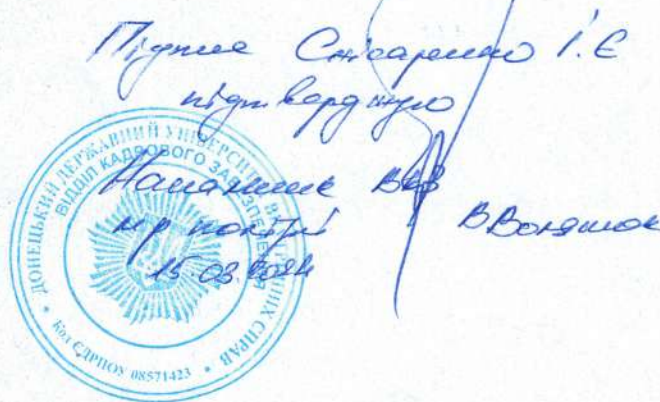 Підпис Слюсаренко І.Є
підтверджую
Начальник ВКЗ
м-р поліції
15.03.2024
ДОНЕЦЬКИЙ ДЕРЖАВНИЙ УНІВЕРСИТЕТ ВНУТРІШНІХ СПРАВ
ВІДДІЛ КАДРОВОГО ЗАБЕЗПЕЧЕННЯ
Код ЄДРПОУ 08571423